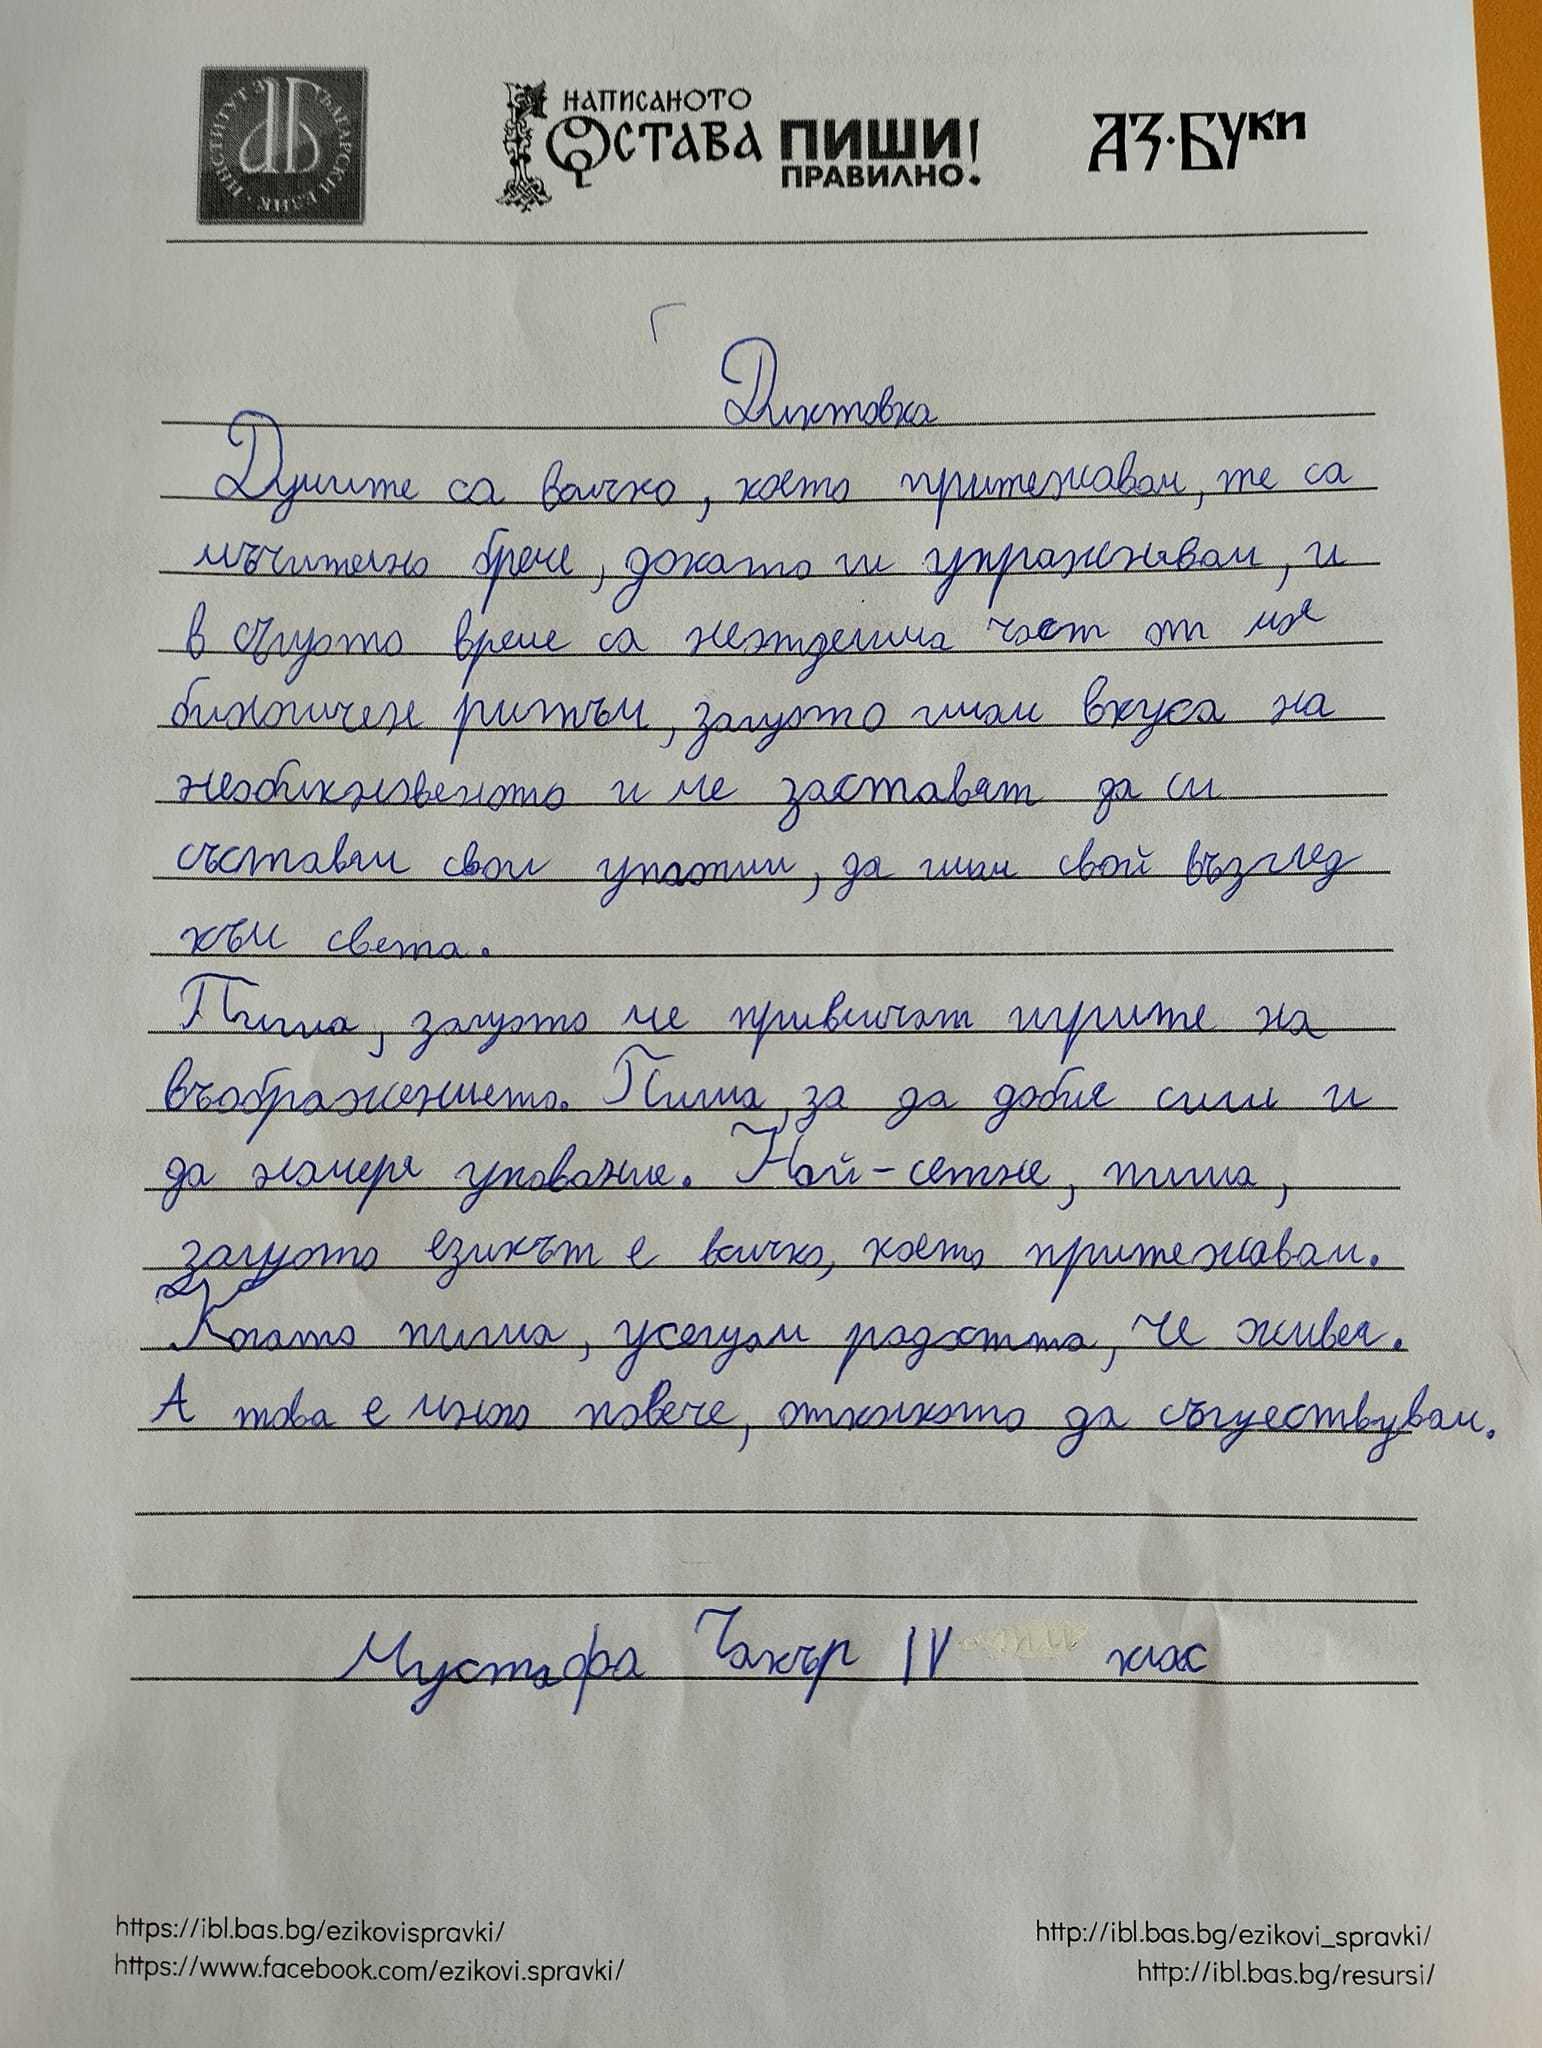 ИНСТИТУТ ЗА БЪЛГАРСКИ ЕЗИК
НАПИСАНОТО
ОСТАВА ПИШИ
ПРАВИЛНО!
АЗ·БУКИ
Диктовка
Думите са всичко, което притежавам, те са
мъчително бреме, докато ги упражнявам, и
в същото време са неотделима част от моя
биологичен ритъм, защото имам вкуса на
необикновеното и ме заставят да си
съставям свои утопии, да имам свой възглед
към света.
Пиша, защото ме привличат игрите на
въображението. Пиша, за да добия сили и
да намеря упование. Най-сетне, пиша,
защото езикът е всичко, което притежавам.
Когато пиша, усещам радостта, че живея.
А това е много повече, отколкото да съществувам.
Мустафа Чакър IV клас
https://ibl.bas.bg/ezikovispravki/
http://ibl.bas.bg/ezikovi_spravki/
https://www.facebook.com/ezikovi.spravki/
http://ibl.bas.bg/resursi/